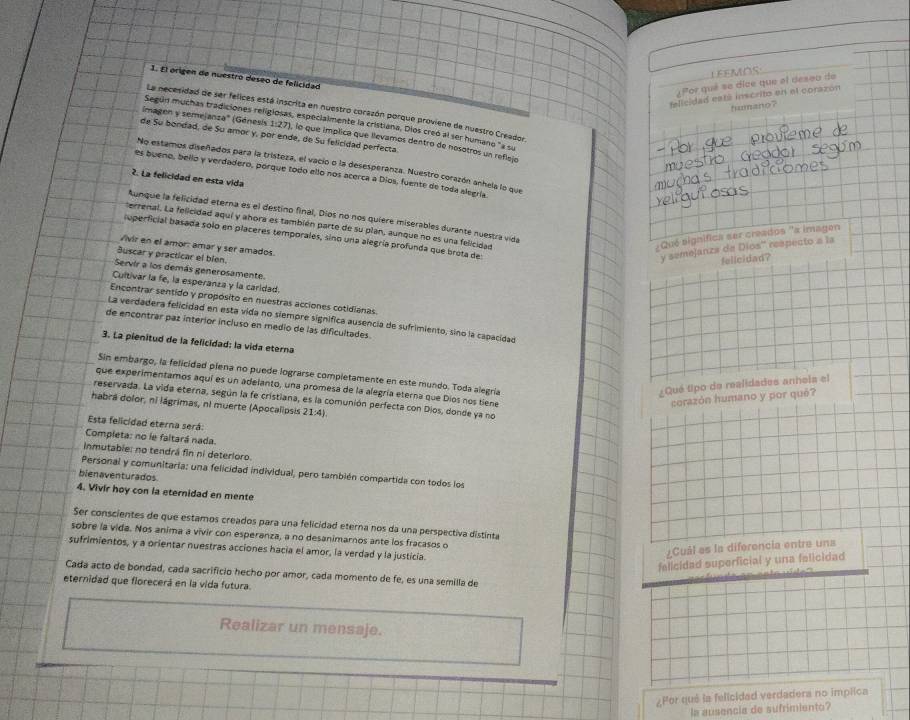 1. El origen de nuestro deseo de felicidad
La necesidad de ser felices está inscrita en nuestro corazón porque proviene de nuestro Creador.
Según muchas tradiciones religiosas, especialmente la cristiana, Dios creó al ser humano "a su
imagen y semejanza" (Génesis 1:27), lo que implica que llevamos dentro de nosotros un reflejo
de Su bondad, de Su amor y, por ende, de Su felicidad perfecta.
No estamos diseñados para la tristeza, el vacío o la desesperanza. Nuestro corazón anhela lo que
es bueno, bello y verdadero, porque todo ello nos acerca a Dios, fuente de toda alegría.
2. La felicidad en esta vida
Aunque la felicidad eterna es el destino final, Dios no nos quiere miserables durante nuestra vida
terrenal. La felicidad aquí y ahora es también parte de su plan, aunque no es una felicidad
superficial basada solo en placeres temporales, sino una alegría profunda que brota de:
Vivir en el amor: amar y ser amados.
Buscar y practicar el bien.
Servir a los demás generosamente.
Cultivar la fe, la esperanza y la caridad.
Encontrar sentido y propósito en nuestras acciones cotidianas.
La verdadera felicidad en esta vida no siempre significa ausencia de sufrimiento, sino la capacidad
de encontrar paz interior incluso en medio de las dificultades.
3. La plenitud de la felicidad: la vida eterna
Sin embargo, la felicidad plena no puede lograrse completamente en este mundo. Toda alegría
que experimentamos aquí es un adelanto, una promesa de la alegría eterna que Dios nos tiene
reservada. La vida eterna, según la fe cristiana, es la comunión perfecta con Dios, donde ya no
habrá dolor, ni lágrimas, ni muerte (Apocalipsis 21:4).
Esta felicidad eterna será:
Completa: no le faltará nada.
Inmutable: no tendrá fin ni deterioro.
Personal y comunitaria: una felicidad individual, pero también compartida con todos los
bienaventurados.
4. Vivir hoy con la eternidad en mente
Ser conscientes de que estamos creados para una felicidad eterna nos da una perspectiva distinta
sobre la vida. Nos anima a vivir con esperanza, a no desanimarnos ante los fracasos o
sufrimientos, y a orientar nuestras acciones hacia el amor, la verdad y la justicia.
Cada acto de bondad, cada sacrificio hecho por amor, cada momento de fe, es una semilla de
eternidad que florecerá en la vida futura.
Realizar un mensaje.
LEEMOS:
¿Por qué se dice que el deseo de
felicidad está inscrito en el corazón
humano?
- Por que provieme de
muestro creador segum
muchas tradiciomes
religuiosas
¿Qué significa ser creados "a imagen
y semejanza de Dios" respecto a la
felicidad?
¿Qué tipo de realidades anhela el
corazón humano y por qué?
¿Cuál es la diferencia entre una
felicidad superficial y una felicidad
¿Por qué la felicidad verdadera no implica
la ausencia de sufrimiento?